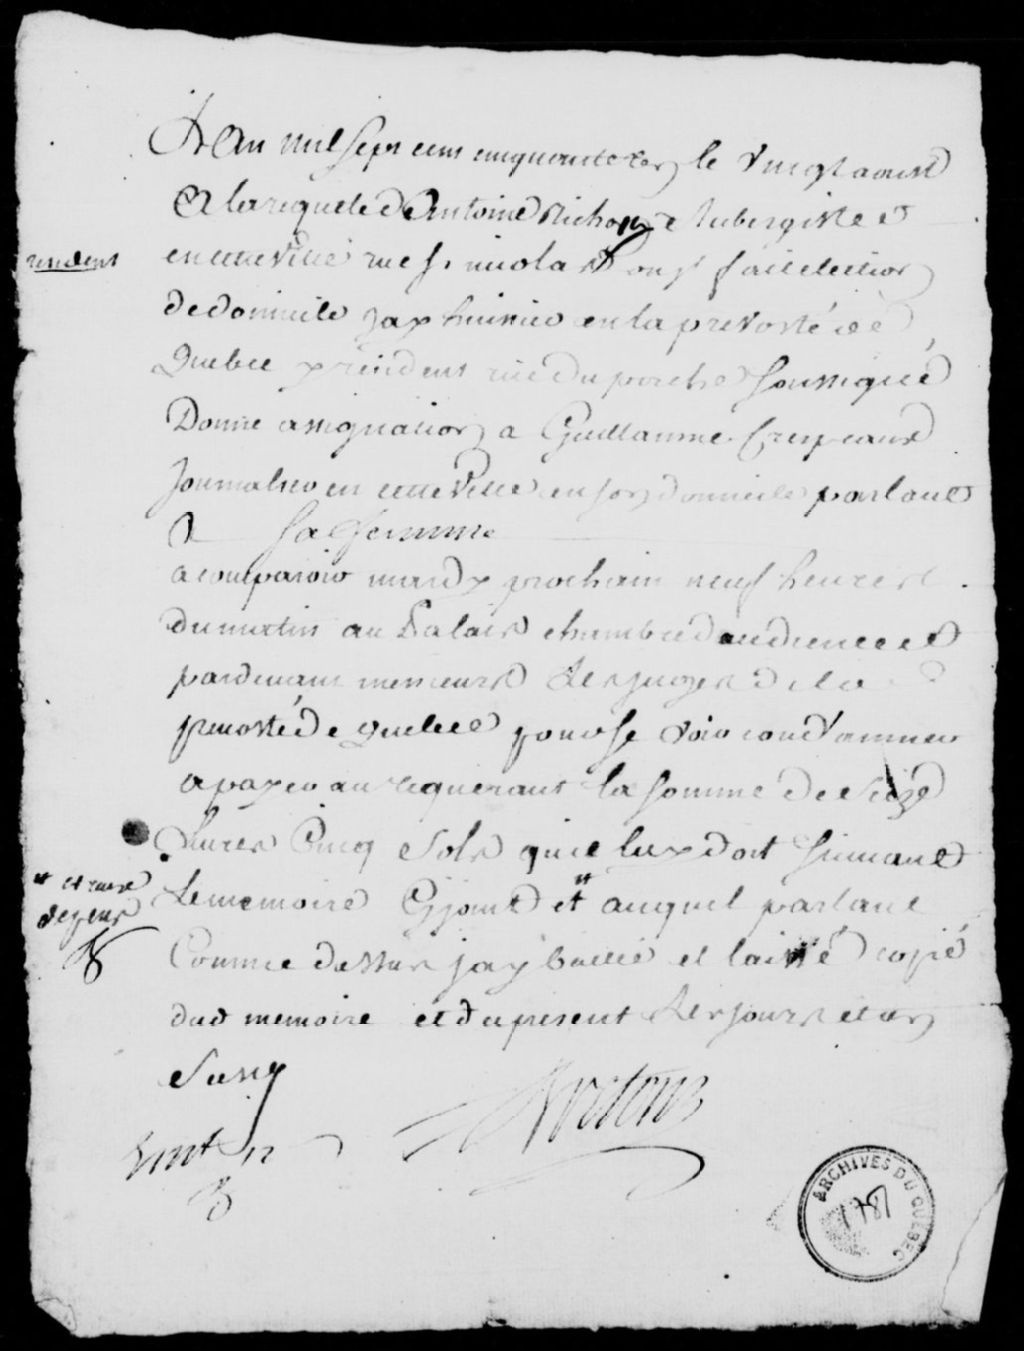 L'an mil sept cens cinquante le vingt aoust
A la requete de Antoine Michon aubergiste
resident
en cette ville rue St nicolas fait election
de domicile jay huissier en la prevosté de
Quebec y resident rue du porche soussigné
Donné assignation a Guillaume Crespeaux
Journalier en cette ville en son domicile parlant
A sa femme
a comparoir mardy prochain neuf heures
du matin au Palais chambre daudience et
pardevant messieurs les juges de la
prevosté de Quebec pour se voir condamner
a payer au requerant la somme de seize
livres Cinq sols quil luy doit suivant
Le memoire Cyjoint et auquel parlant
et aux
depens
Comme dessus jay baillé et laissé copié
dud memoire et du present les jours et an
Susd
ARCHIVES DU QUEBEC
1787